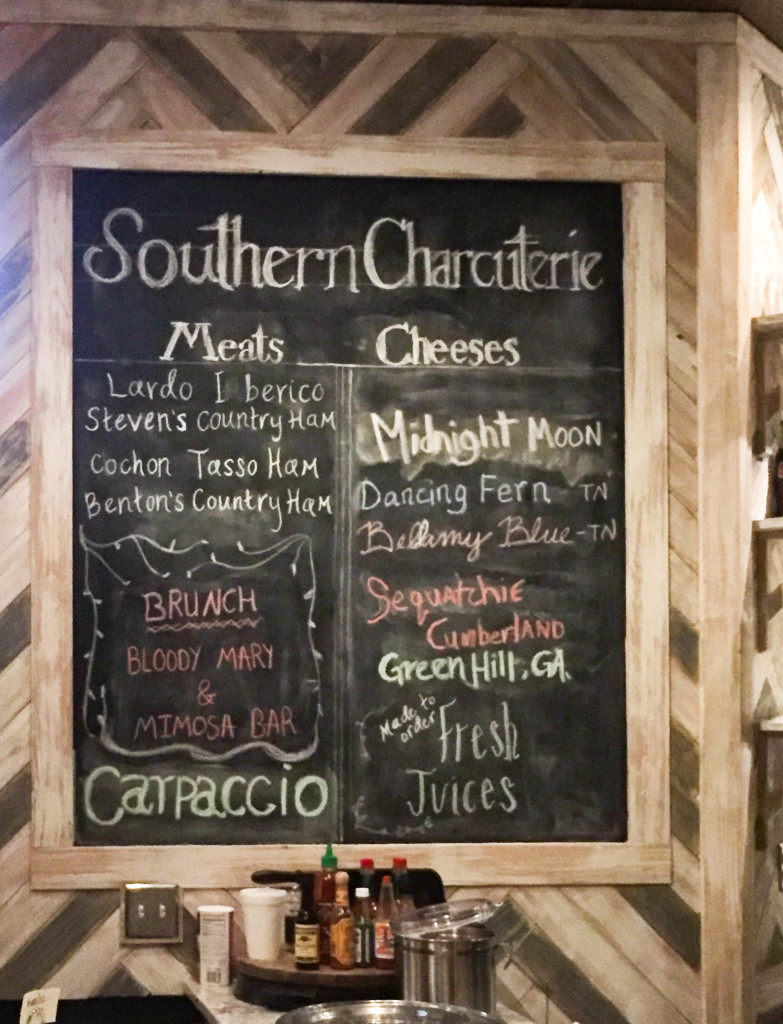 Southern Charcuterie
Meats
Lardo I berico
Steven's Country Ham
Cochon Tasso Ham
Benton's Country Ham
BRUNCH
BLOODY MARY
&
MIMOSA BAR
Carpaccio
Cheeses
Midnight Moon
Dancing Fern - TN
Bellamy Blue - TN
Sequatchie
Cumberland
Green Hill, GA.
Made to
order
Fresh
Juices